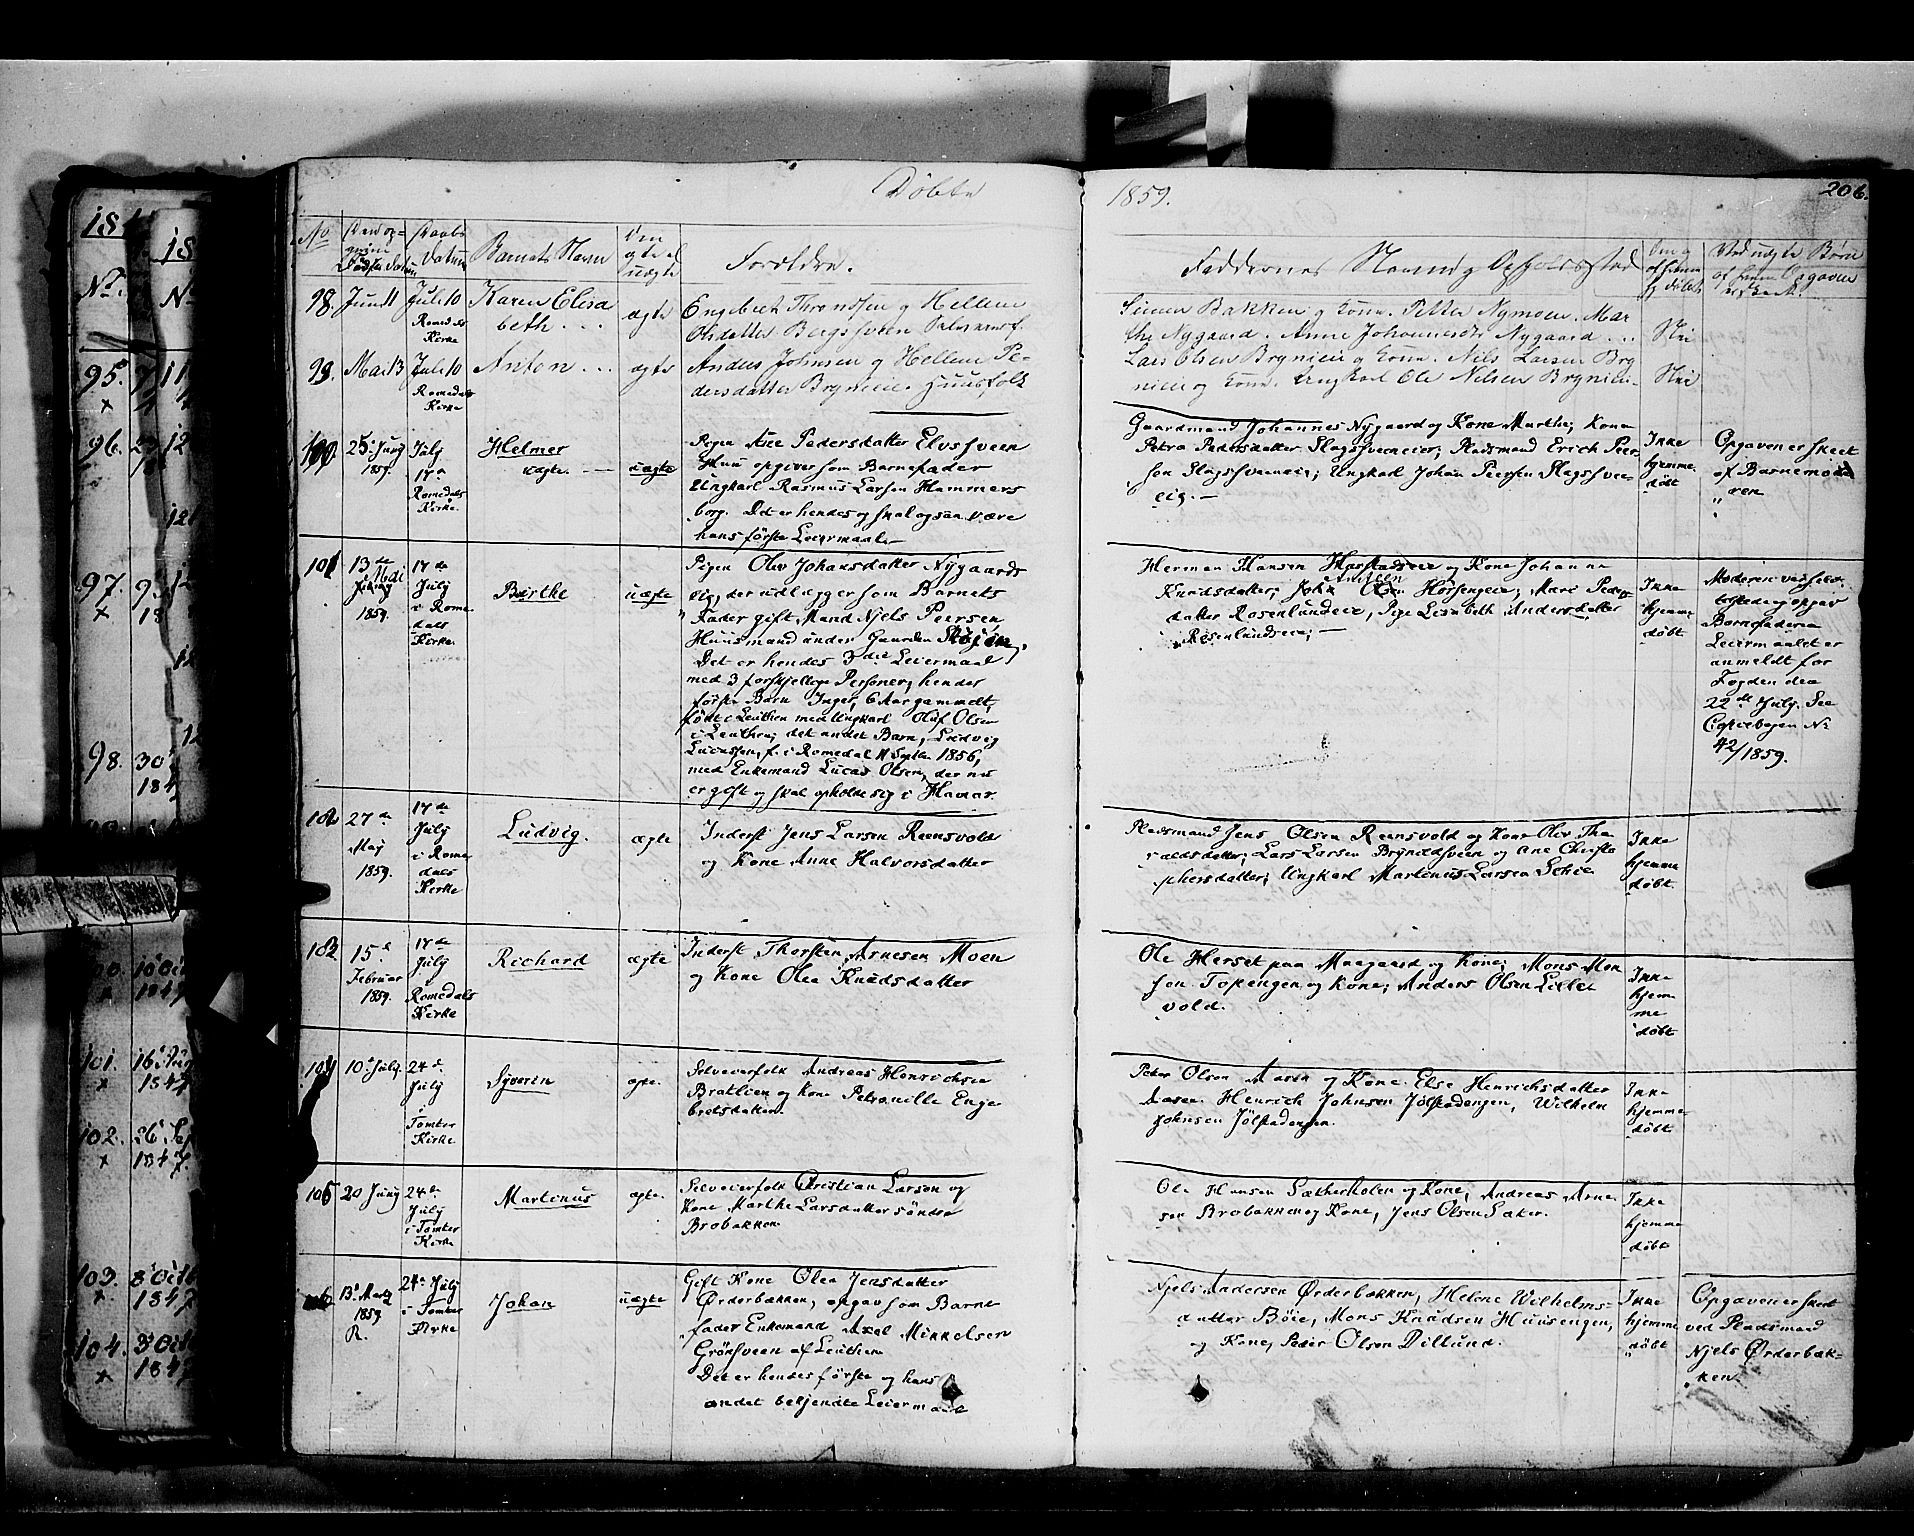 Døbte
1859.
206.
No
Barnets Navn
Forældre.
Faddernes Navn og Opholdssted
98. Juni 11 Juli 10 Karen Elisa ægte Engebret Throndsen og Hellene
Romedals Kirke beth . . . Olsdatter Bergssveen
Simen Bakken og Kone. Petter Nymoen. Mar
the Nygaard. Anne Johannesdtr Nygaard . . . Nei
99. Mai 13 Juli 10 Anton . . . ægte Anders Johnsen og Hellene Pe-
Romedals Kirke dersdatter Brynieie. Huusfolk
Lars Olsen Brynieie og Kone. Nils Larsen Bry
nieie og Kone. Ungkarl Ole Nilsen Brynieie. Nei
100 25. Juny 1859. July 17de Romedals Kirke. Helmer uægte. — uægte
Pigen Ane Pedersdatter Elvsveen
Hun opgiver som Barnefader
Ungkarl Rasmus Larsen Hammers
borg. Det er hendes og skal ogsaa være
hans første Leiermaal.
Gaardmand Johannes Nygaard og Kone Marthe; Kone
Petra Pedersdatter Slagssveneier; Pladsmand Erich Peer
sen Slagssveneeie; Ungkarl Johan Peersen Slagssve-
eie. —
Ikke
hjemme
døbt
Opgaven er skeet
af Barnemode
" ren
101 13de Mai 1859. 17de July i Romedals Kirke. Birthe uægte
Pigen Oliv Johansdatter Nygaards
eie, der udlægger som Barnets
" Fader gift Mand Njels Peersen
Huusmand under Gaarden
Det er hendes 3die Leiermaal
med 3 forskjellige Personer, hendes
første Barn Inger, 6 Aar gammelt,
født i Leuthen med Ungkarl Oluf Olsen
i Leuthen; det andet Barn, Ludvig
Lucassen, f. i Romedal 11 Septbr. 1856,
med Enkemand Lucas Olsen, der nu
er gift og skal opholde sig i Hamar.
Herman Hansen Harstadseie og Kone Johanne
Knudsdatter; Olsen Horsengeie; Mari Peders
datter Rosenlundeie, Pige Lisabeth Andersdatter
Rosenlundseie; —
Ikke
hjemme
døbt
Moderen var selv
tilstede og opgav
Barnefaderen
Leiermaalet er
anmeldt for
Fogden den
22de July. See
Copiebogen No
42/1859.
102 27de May 1859. 17de July i Romedals Kirke Ludvig. ægte
Inderst Jens Larsen Reensvold
og Kone Anne Halvorsdatter
Pladsmand Jens Olsen Reensvold og Kone Oliv Tha
raldsdatter; Lars Larsen Bryndsveen og Ane Christo
phersdatter; Ungkarl Martinus Larsen
Ikke
hjemme
døbt
103 15de Februar 1859. 17de July Romedals Kirke Richard ægte
Inderst Thorsten Arnesen Moen
og Kone Olea Knudsdatter
Ole Herset paa Maagaard og Kone; Mons Mon
sen Topengen og Kone; Anders Olsen Lille
vold.
Ikke
hjem
me
døbt
104 10de July. 24de July i Tomter Kirke Syverin ægte.
Selveierfolk Andreas Henrichsen
Bratlien og Kone Petronille Enge
bretsdatter.
Peter Olsen Aasen og Kone. Else Henrichsdatter
Aasen. Henrich Johnsen Jølstadengen, Wilhelm
Johnsen Jølstadengen.
Ikke
hjemme
døbt
105 20 Juny 24de July i Tomter Kirke Martinus ægte.
Selveierfolk Christian Larsen og
Kone Marthe Larsdatter søndre
Brobakken
Ole Hansen Sætherholen og Kone, Andreas Arne
sen Brobakken og Kone, Jens Olsen Sæter.
Ikke
hjemme
døbt
106 13de Marts 1859 R. 24de July i Tomter Kirke Johan uægte
Gift Kone Olea Jensdatter
Ørderbækken, opgav som Barne
" fader Enkemand Axel Mikkelsen
Grønsveen af Leuthen
Det er hendes første og hans
andet bekjendte Leiermaal
Njels Andersen Ørderbækken, Helene Wilhelms-
datter Bøie, Mons Knudsen Huusengen,
og Kone, Peder Olsen Dillund.
Ikke
hjemme
" døbt
Opgaven er skeet
ved Pladsmand
Njels Ørderbæk-
ken.
95.
96.
97.
98.
101.
102.
103. 8 Octb 1847
104. 3 Octb 1847